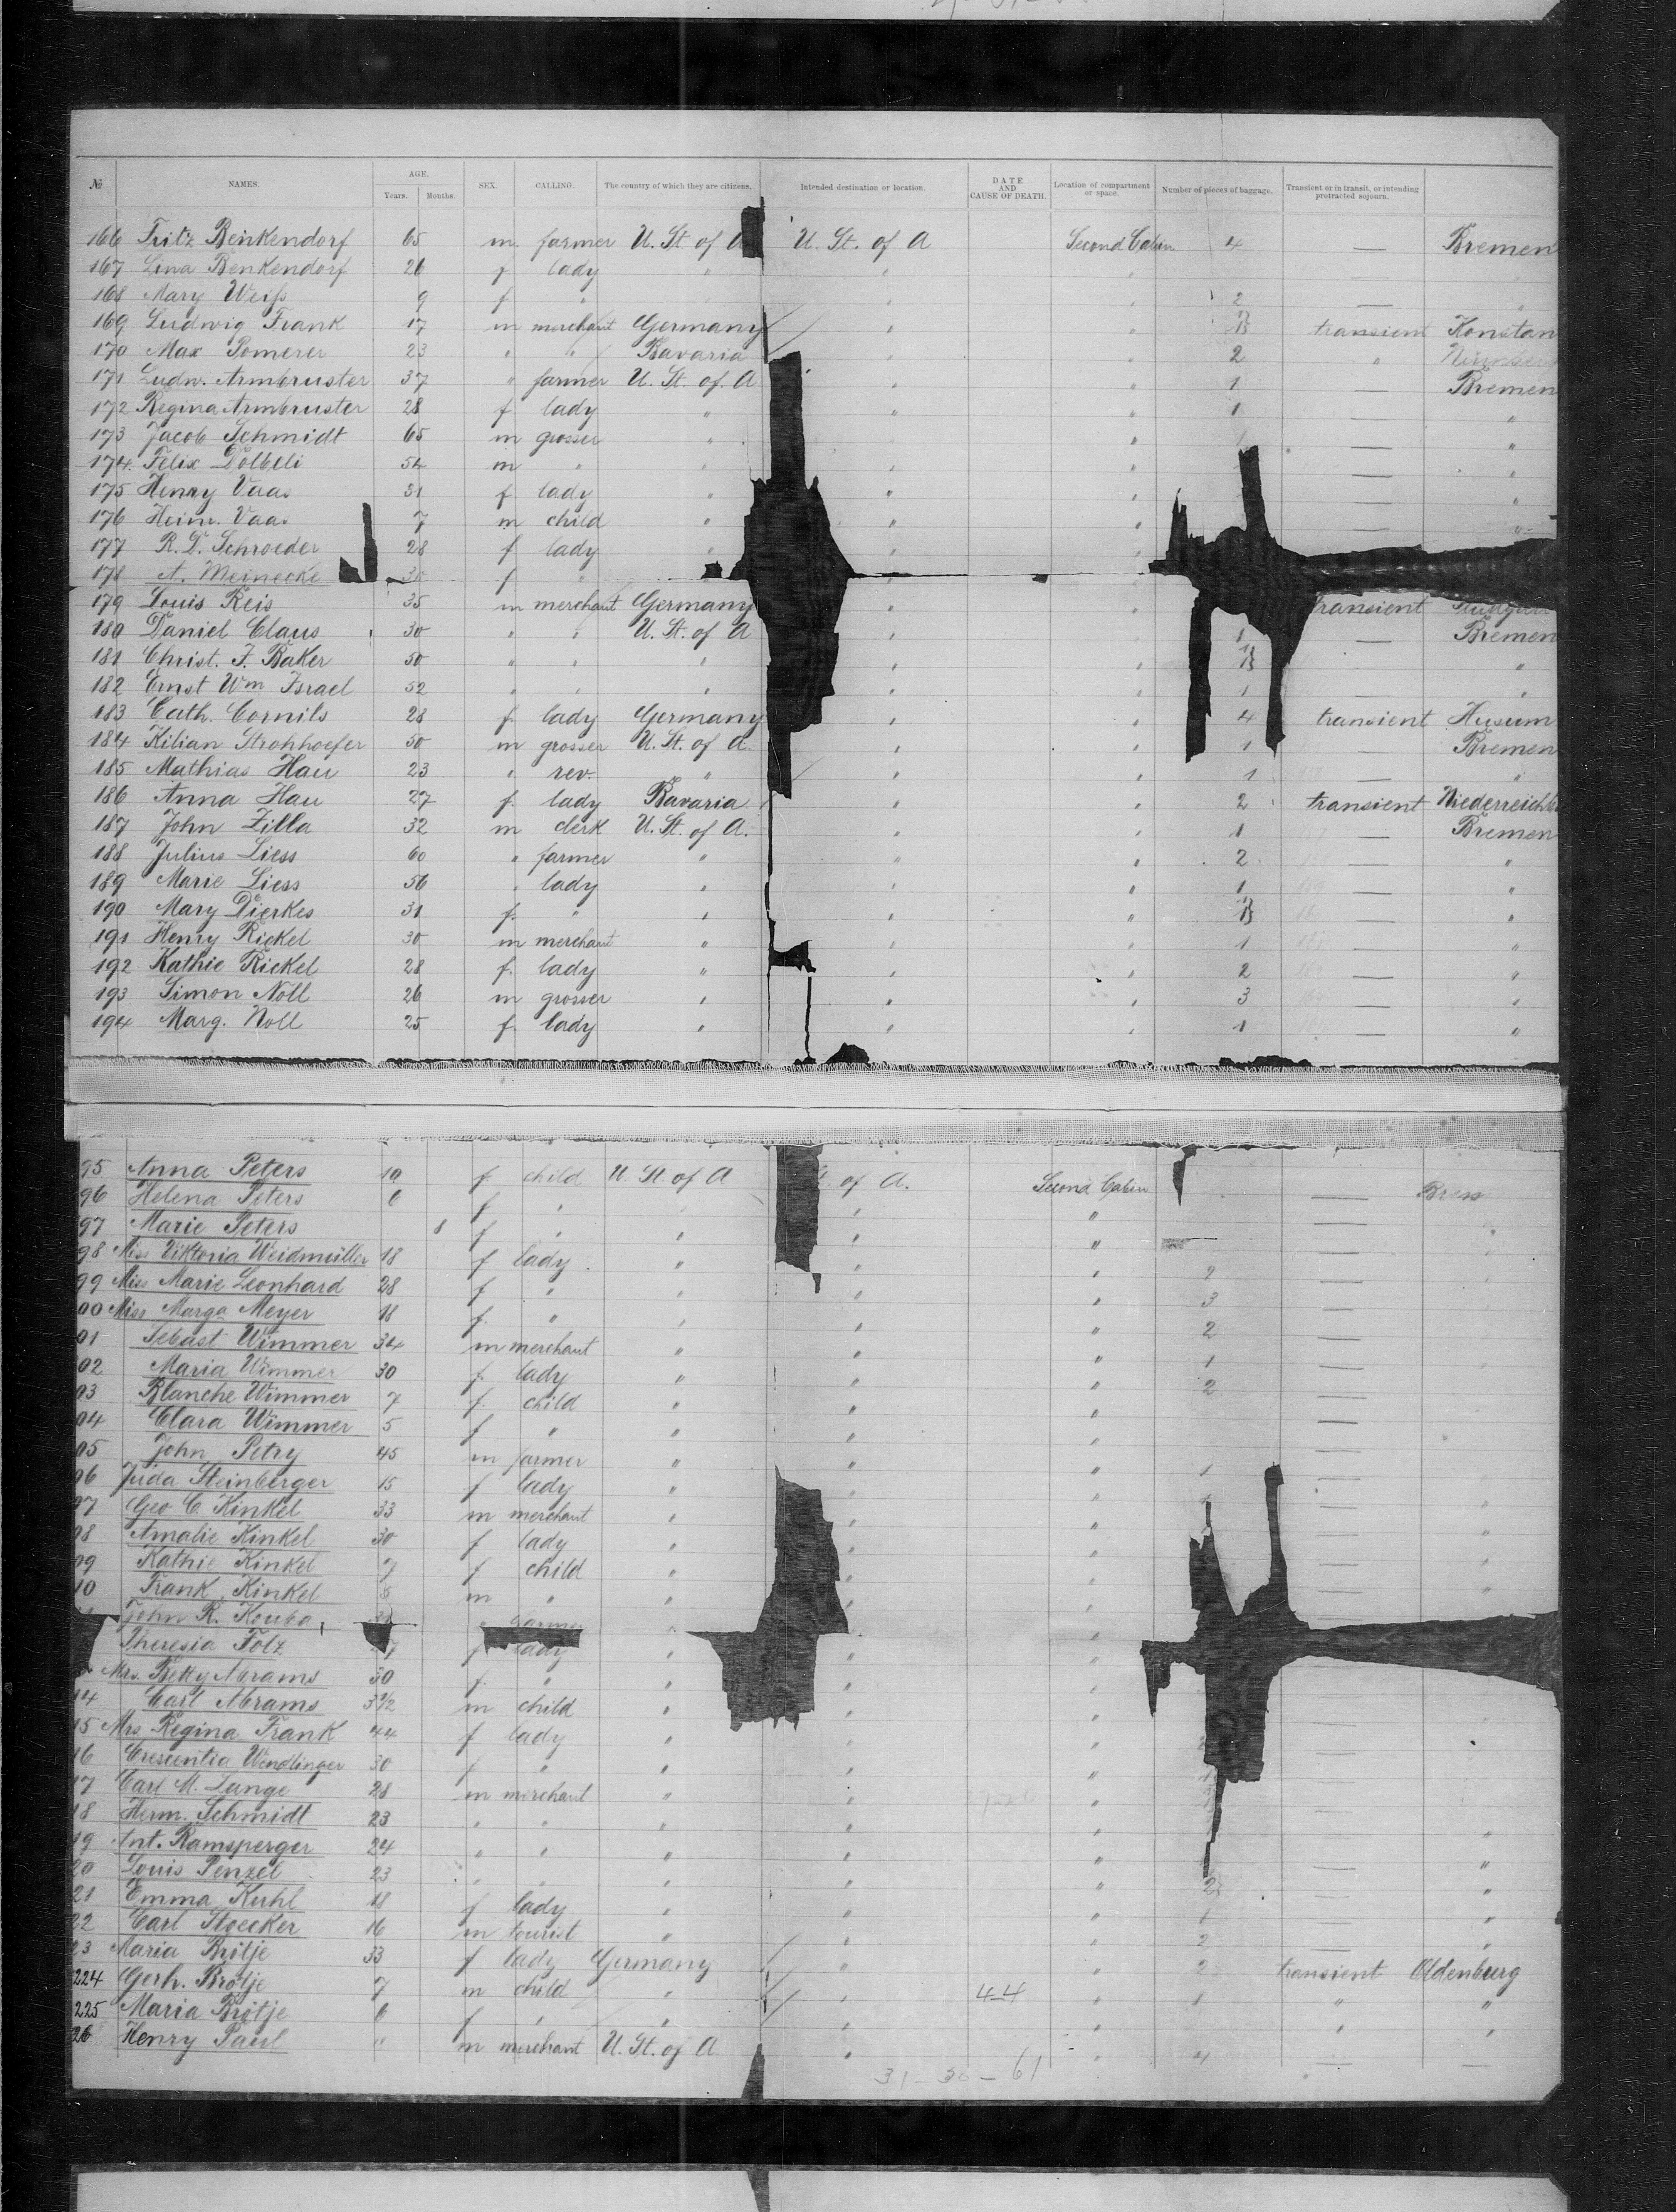 № NAMES. AGE. Years. Months. SEX. CALLING. The country of which they are citizens. Intended destination or location. DATE AND CAUSE OF DEATH. Location of compartment or space. Number of pieces of baggage. Transient or in transit, or intending protracted sojourn.
166 Fritz Benkendorf 65 m. farmer U. St. of A U. St. of A Second Cabin 4 — Bremen
167 Lina Benkendorf 26 f lady " " " — "
168 Mary Weiſs 9 f " " " " 2 — "
169 Ludwig Frank 17 m merchant Germany " " transient Konstan
170 Max Pomerer 23 " " Bavaria " " 2 "
171 Ludw. Armbruster 37 " farmer U. St. of. A " " 1 — Bremen
172 Regina Armbruster 28 f lady " " " 1 — "
173 Jacob Schmidt 65 m grosser " " " — "
174. Felix Dölbeli 54 m " " " " — "
175 Henry Vaas 31 f lady " " " — "
176 Heinr. Vaas 7 m child " " " — "
177 R. D. Schroeder 28 f lady " " "
178 A. Meinecke 30 f " "
179 Louis Reis 35 m merchant Germany " " transient
180 Daniel Claus 30 " " U. St. of A " " 1 — Bremen
181 Christ. F. Baker 50 " " " " " — "
182 Ernst Wm Israel 52 " " " " " 1 — "
183 Cath. Cornils 28 f. lady Germany " " 4 transient Husum
184 Kilian Strohhoefer 50 m grosser U. St. of a. " " 1 — Bremen
185 Mathias Hau 23 " rev. " " " 1 — "
186 Anna Hau 27 f. lady Bavaria " " 2 transient
187 John Zilla 32 m clerk U. St. of A. " " 1 — Bremen
188 Julius Liess 60 " farmer " " " 2 — "
189 Marie Liess 56 " lady " " " 1 — "
190 Mary Dierkes 31 f. " " " " — "
191 Henry Rickel 30 m merchant " " " 1 — "
192 Kathie Rickel 28 f. lady " " " 2 — "
193 Simon Noll 26 m grosser " " " 3 — "
194 Marg. Noll 25 f. lady " " " 1 — "
95 Anna Peters 10 f child U. St. of A of A. Second Cabin —
96 Helena Peters 6 f " " " " —
97 Marie Peters 8 f " " " " —
98 Miss Viktoria Weidmüller 18 f lady " " " 2 —
99 Miss Marie Leonhard 28 f " " " " 3 —
00 Miss Marga Meyer 18 f. " " " " 2 —
01 Sebast Wimmer 34 m merchant " " " 1 —
02 Maria Wimmer 30 f. lady " " " 2 —
03 Blanche Wimmer 7 f. child " " " —
04 Clara Wimmer 5 f " " " " —
05 John Petry 45 m farmer " " " 1 —
06 Steinberger 15 f lady " " " —
07 Geo C. Kinkel 33 m merchant " " " — "
08 Amalie Kinkel 30 f lady " " " — "
09 Kathie Kinkel 7 f child " " " — "
10 Frank Kinkel m " " " "
John R. Kouba " "
Theresia Folz f lady " " "
Mrs. Beky Abrams 30 f. " " " "
14 Carl Abrams 3 1/2 m child " " " —
15 Mrs Regina Frank 44 f lady " " " —
16 Crescentia Wendlinger 30 f " " " " —
17 Carl M. Lange 28 m merchant " " " —
18 Herm. Schmidt 23 " " " " " — "
19 Ant. Ramsperger 24 " " " " " — "
20 Louis Penzel 23 " " " " " 2 — "
21 Emma Kuhl 18 f lady " " " 1 — "
22 Carl Stoecker 16 m tourist " " " 2 — "
23 Maria Brötje 33 f lady Germany " " 2 transient Oldenburg
224 Gerh. Brötje 7 m child " " 44 " 1 " "
225 Maria Brötje 6 f " " " " " "
26 Henry Paul " m merchant U. St. of A " " 4 — —
31-30-61